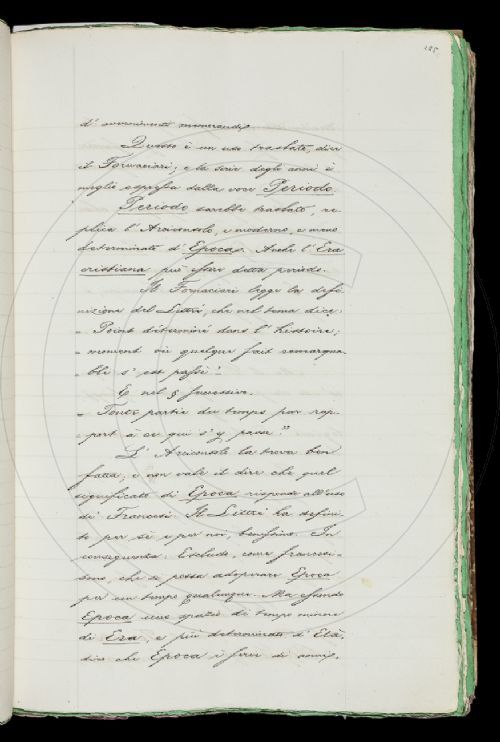 125
d'avvenimenti memorandi.
Questo è un uso traslato, dice
il Fornaciari; e la serie degli anni è
meglio espressa dalla voce Periodo.
Periodo sarebbe traslato, re-
plica l'Arciconsolo, e moderno, e meno
determinato d'Epoca. Anche l'Era
cristiana può essere detta periodo.
Il Fornaciari legge la defi-
nizione del Littré, che nel tema dice:
" Point déterminé dans l'histoire;
" moment où quelque fait remarqua-
" ble s'est passé"
E nel § successivo.
" Toute partie du temps par rap-
" port à ce qui s'y passe."
L'Arciconsolo la trova ben
fatta; e non vale il dire che quel
significato di Epoca risponde all'uso
dei Francesi. Il Littré ha defini-
to per sé e per noi, benissimo. In
conseguenza: Escluso, come francesi-
smo, che si possa adoperare Epoca
per un tempo qualunque. Ma essendo
Epoca uno spazio di tempo minore
di Era, e più determinato d'Età,
dire che Epoca è serie di anni,